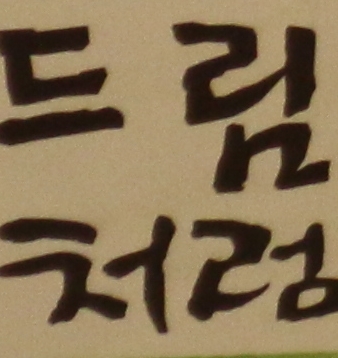 드림
처럼